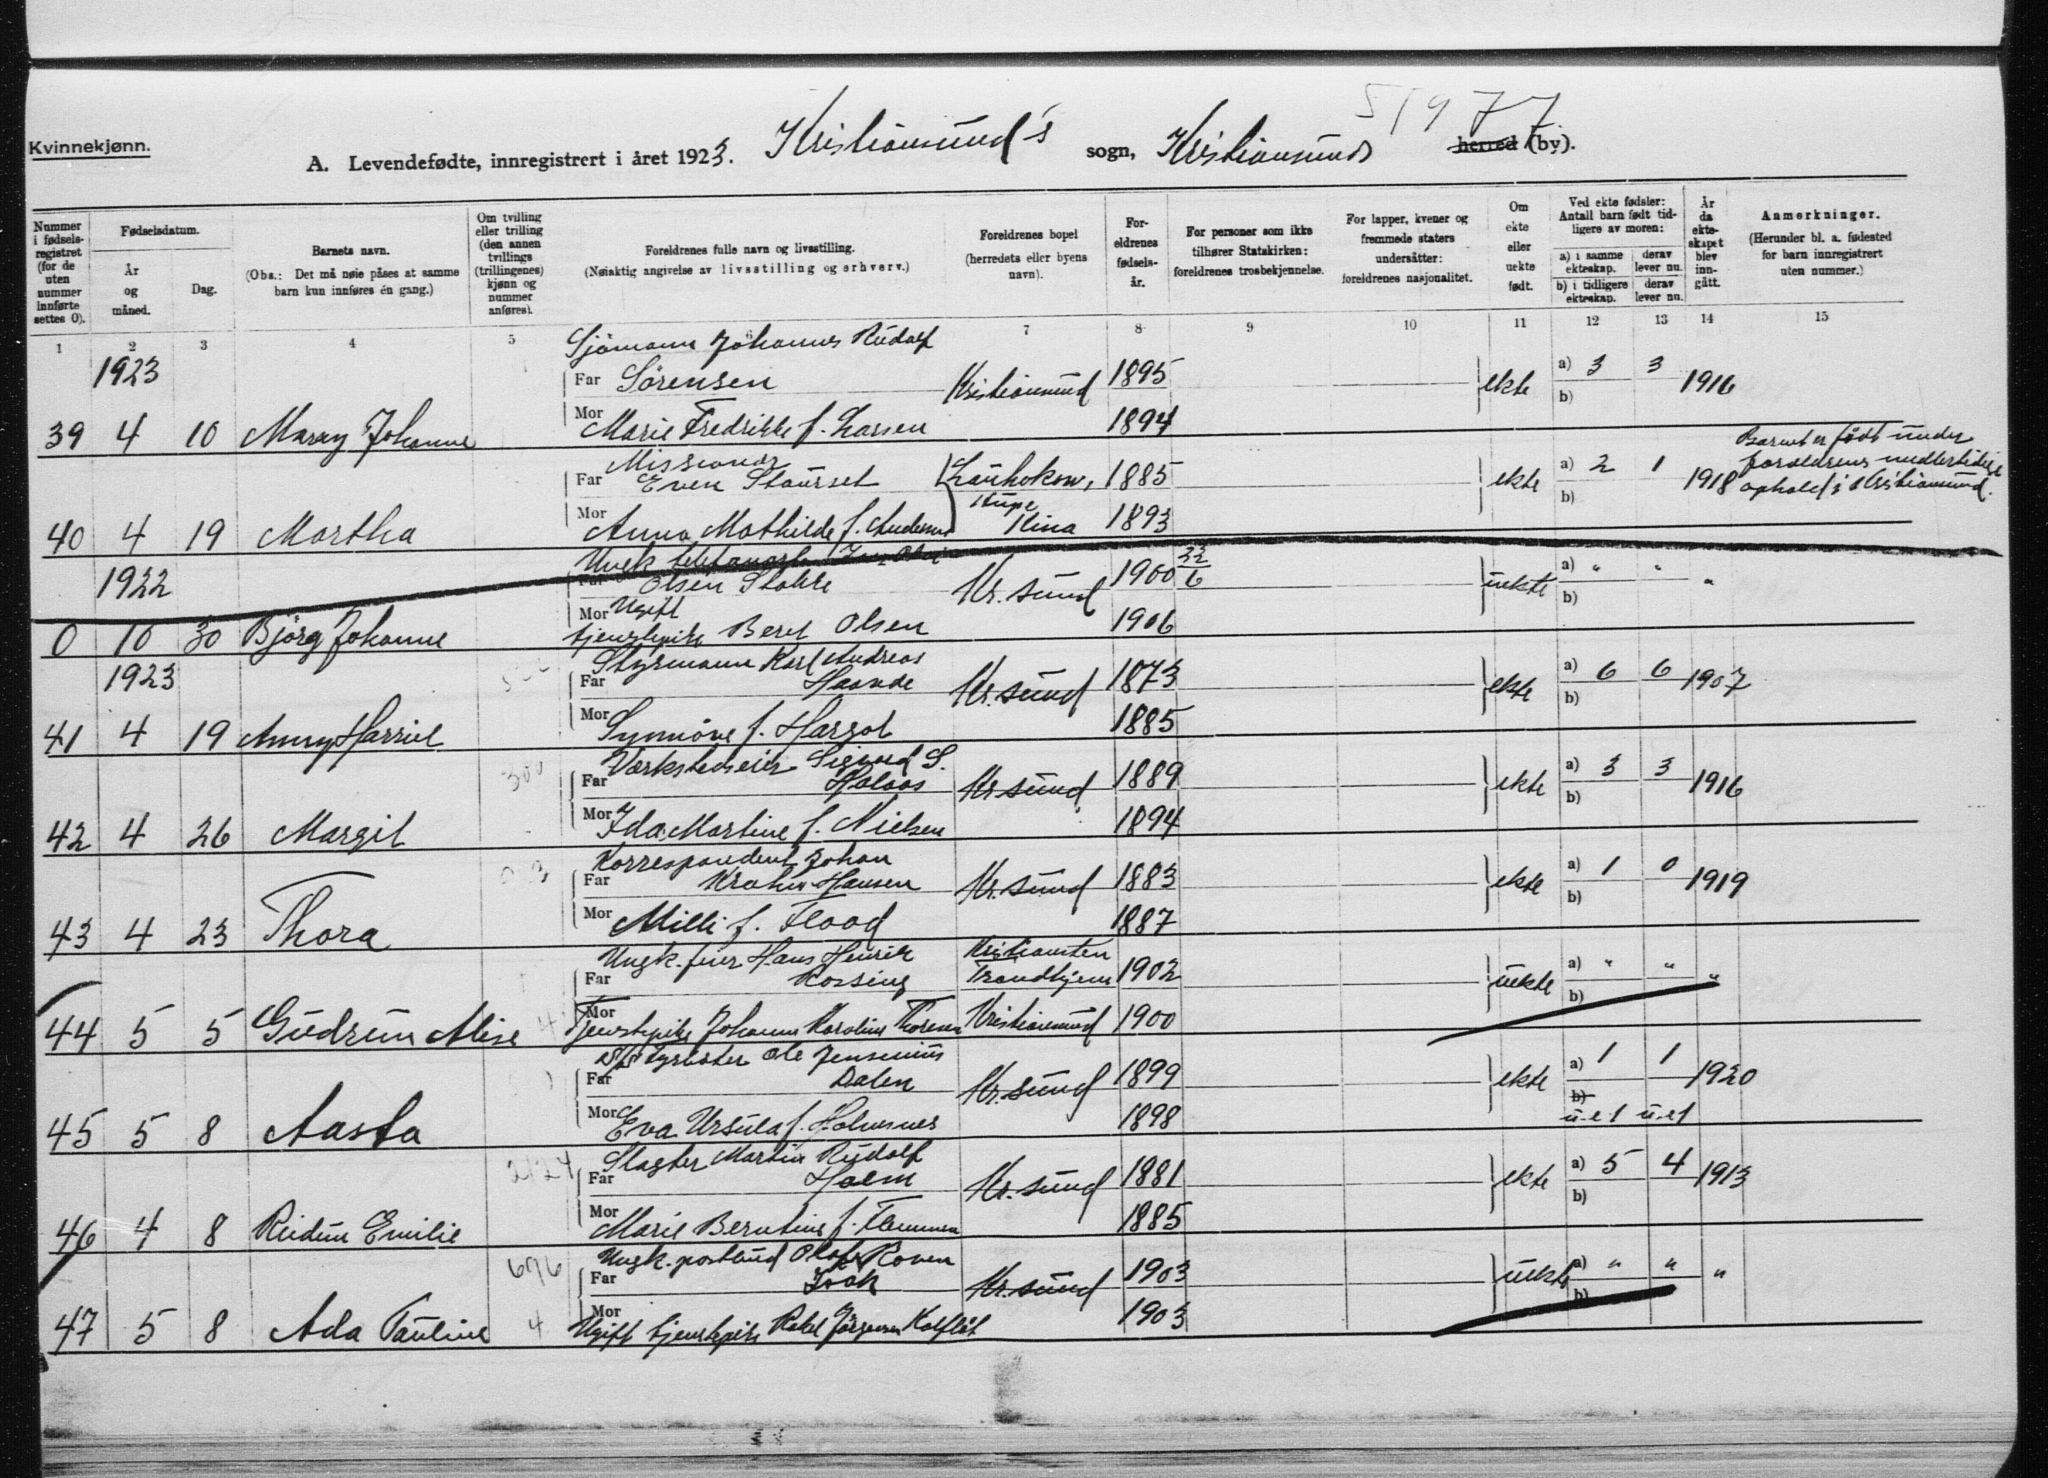 51977
Kvinnekjønn.
A. Levendefødte, innregistrert i året 1923. Kristiansund's sogn, Kristiansunds herred (by).
Nummer i fødselsregistret (for de uten nummer innførte settes 0).
Fødselsdatum.
År og måned.
Dag.
Barnets navn.
(Obs.: Det må nøie påses at samme barn kun innføres én gang.)
Om tvilling eller trilling (den annen tvillings (trillingenes) kjønn og nummer anføres).
Foreldrenes fulle navn og livsstilling.
(Nøiaktig angivelse av livsstilling og erhverv.)
Foreldrenes bopel (herredets eller byens navn).
Foreldrenes fødselsår.
For personer som ikke tilhører Statskirken: foreldrenes trosbekjennelse.
For lapper, kvener og fremmede staters undersåtter: foreldrenes nasjonalitet.
Om ekte eller uekte født.
Ved ekte fødsler: Antall barn født tidligere av moren:
a) i samme ekteskap. derav lever nu.
b) i tidligere ekteskap. derav lever nu.
År da ekteskapet blev inngått.
Anmerkninger.
(Herunder bl. a. fødested for barn innregistrert uten nummer.)
1 2 3 4 5 6 7 8 9 10 11 12 13 14 15
1923
Sjömann Johannes Rudolf
Far Sörensen Kristiansund 1895 ekte a) 3 3 1916
b)
39 4 10 Mary Johanne Mor Marie Fredrikke f. Larsen 1894
Missionær
Far Even Staurset Lauhokow, 1885 ekte a) 2 1 1918 Barnet er född under foreldrenes midlertidige ophold i Kristiansund.
b)
Hupe
40 4 19 Martha Mor Anna Mathilde f. Andersen Kina 1893
1922
Ungk.
Far Olsen Stokke Kr.sund 1900 22/6 uekte a) " " "
b)
0 10 30 Björg Johanne Mor Ugift tjenstepike Beret Olsen 1906
1923
Styrmann Karl Andreas
Far Haande Kr.sund 1873 ekte a) 6 6 1907
b)
41 4 19 Anny Harriet Mor Synnöve f. 1885
300
Verkstedseier Sigurd S.
Far Holaas Kr.sund 1889 ekte a) 3 3 1916
b)
42 4 26 Margit Mor Ida Martine f. Nielsen 1894
Korrespondent Johan
Far Hansen Kr.sund 1883 ekte a) 1 0 1919
b)
43 4 23 Thora Mor Milli f. Flood 1887
Ungk. feier Hans Henrik Kristiansten
Far Rossing Trondhjem 1902 uekte a) " " "
b)
44 5 5 Gudrun Alise Mor Tjenstepike Johanna Karoline Thoresen Kristiansund 1900
Ole Jensenius
Far Dalen Kr.sund 1899 ekte a) 1 1 1920
b) u-e1 u-e1
45 5 8 Aasta Mor Eva Ursula f. Holmsnes 1898
2124
Slagter Martin Rudolf
Far Holm Kr.sund 1881 ekte a) 5 4 1913
b)
46 4 8 Reidun Emilie Mor Marie Berntine f. Flemmen 1885
676
Ungk. postbud Olaf Roven
Far Kr.sund 1903 uekte a) " " "
b)
47 5 8 Ada Pauline 4 Mor Ugift tjenstepike Rakel Jörgensen Kalflöt 1903